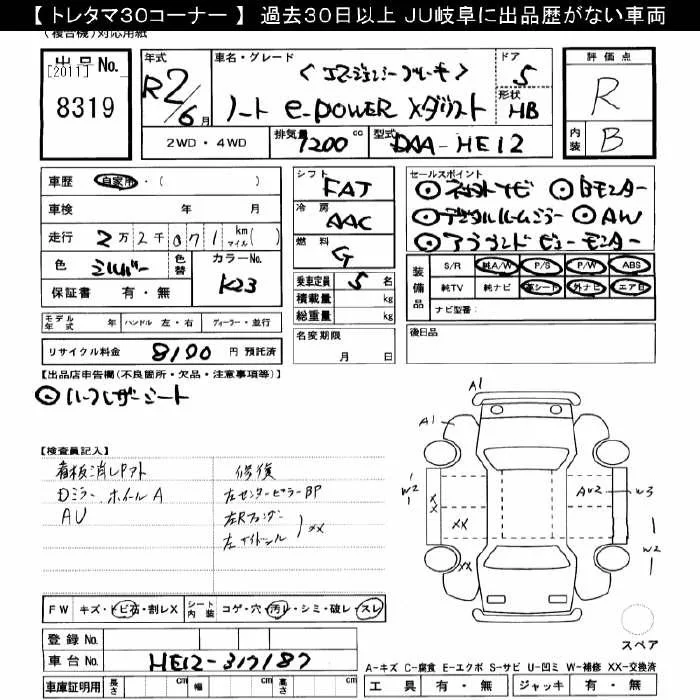 【 トレタマ30コーナー 】 過去30日以上 JU岐阜に出品歴がない車両
(複合機)対応用紙
出品No.
[2011]
8319
年式
R2/6月
車名・グレード
<エマージェンシーブレーキ>
ノート e-POWER Xダリスト
ドア
5
形状
HB
評価点
R
内装
B
2WD・4WD
排気量
1200cc
型式
DAA-HE12
車歴
自家用・( )
車検 年 月
走行 2万2千071 km マイル( )
色
シルバー
色替
カラーNo.
K23
保証書 有・無
モデル年式 年
ハンドル 左・右
ディーラー・並行
リサイクル料金 8100 円 預託済
シフト
FAT
冷房
AAC
燃料
G
乗車定員 5 名
積載量 kg
総重量 kg
名変期限
月 日
セールスポイント
◎ ネットナビ ◎ Bモニター
◎ デジタルルームミラー ◎ AW
◎ アラウンドビューモニター
装備品
S/R 純A/W P/S P/W ABS
純TV 純ナビ 革シート 外ナビ エアB
ナビ型番:
後日品
【出品店申告欄(不良箇所・欠品・注意事項等)】
◎ハーフレザーシート
【検査員記入】
看板消しアト
Dミラー ホイールA
AU
修復
左センターピラーBP
左Rフェンダー
左サイドシル
XX
A1
A1
W2
XX
XX
XX
AU2
W3
W2
FW キズ・トビ石・割レX
シート内装 コゲ・穴・汚レ・シミ・破レ・スレ
登録No.
車台No. HE12-317187
車庫証明用 長さ cm 幅 cm 高さ cm
スペア
A-キズ C-腐食 E-エクボ S-サビ U-凹ミ W-補修 XX-交換済
工具 有・無 ジャッキ 有・無